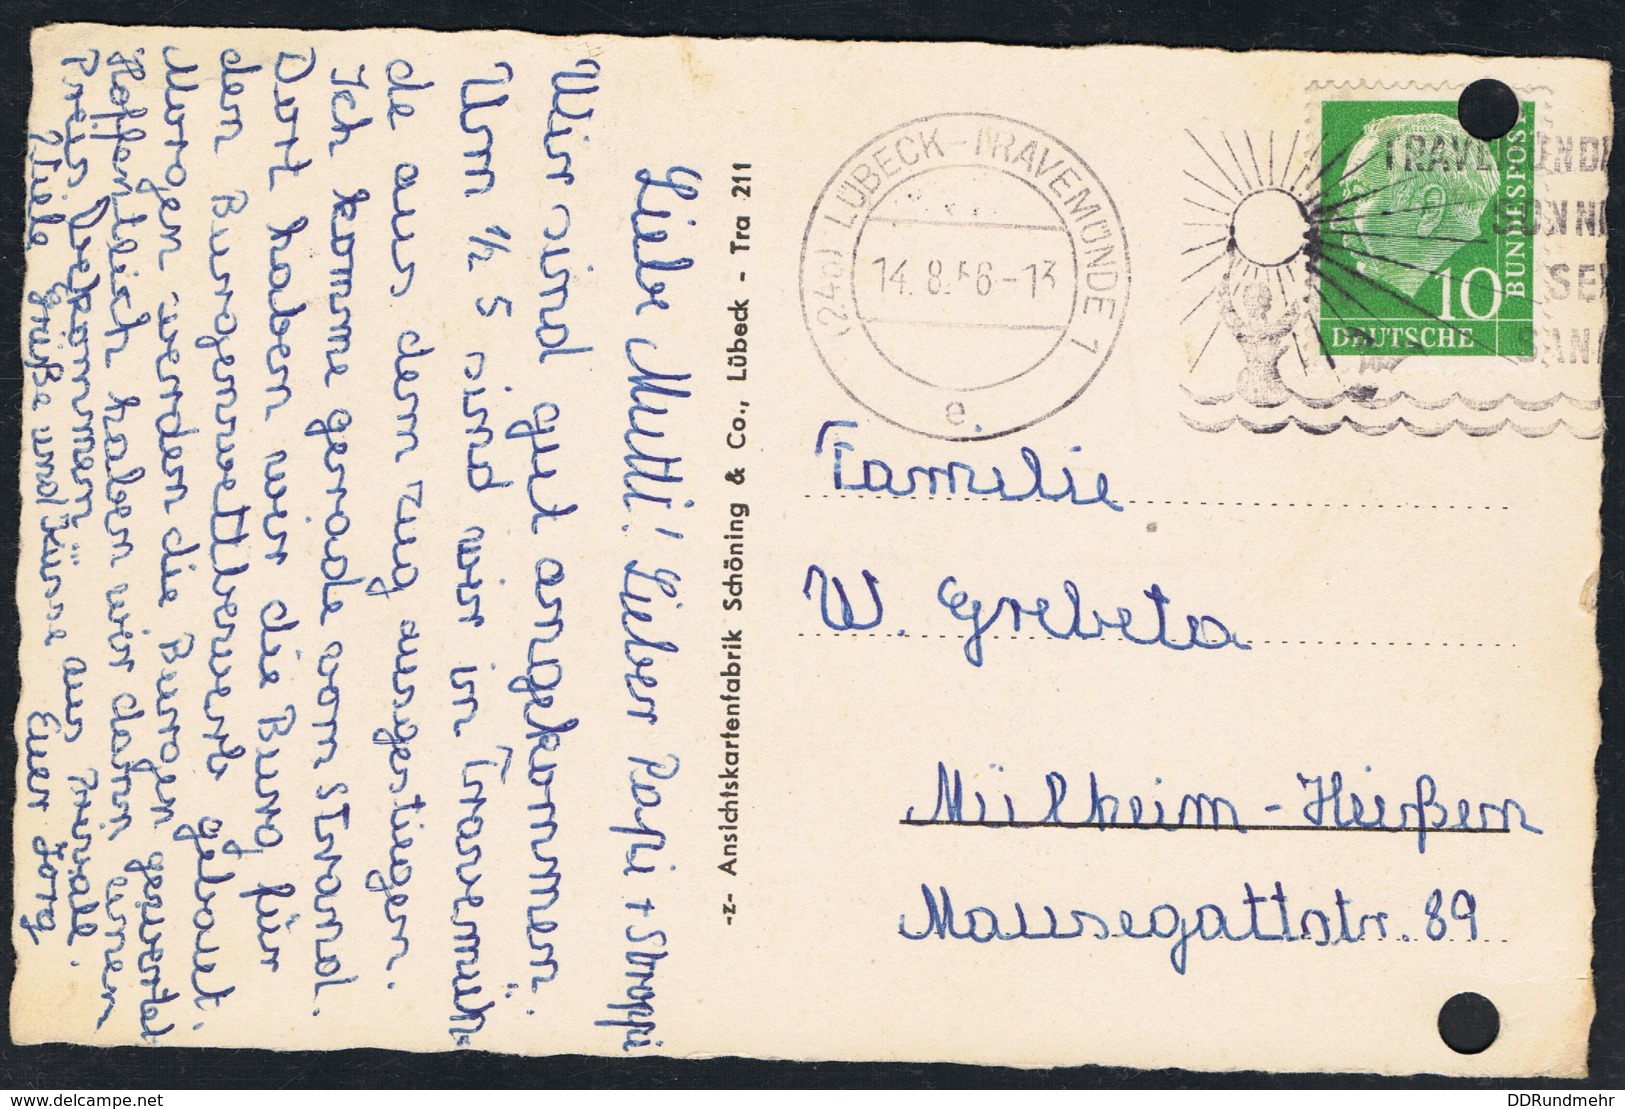 Liebe Mutti! Lieber Papi + Stroppi
Wir sind gut angekommen.
Um ½ 5 sind wir in Travemün-
de aus dem Zug ausgestiegen.
Ich komme gerade vom Strand.
Dort haben wir die Burg für
den Burgenwettbewerb gebaut.
Morgen werden die Burgen gewertet
Hoffentlich haben wir dann einen
Preis bekommen.
Viele Grüße und Küsse aus Priwall.
Euer Jörg
-z- Ansichtskartenfabrik Schöning & Co., Lübeck - Tra 211
(24a) LÜBECK-TRAVEMÜNDE 1
14.8.56-13
e
TRAVEMÜNDE
SONNE
SEE
SAND
10
DEUTSCHE
BUNDESPOST
Familie
W. Grebeta
Mülheim-Heißen
Mausegattstr. 89
DDRundmehr
www.delcampe.net